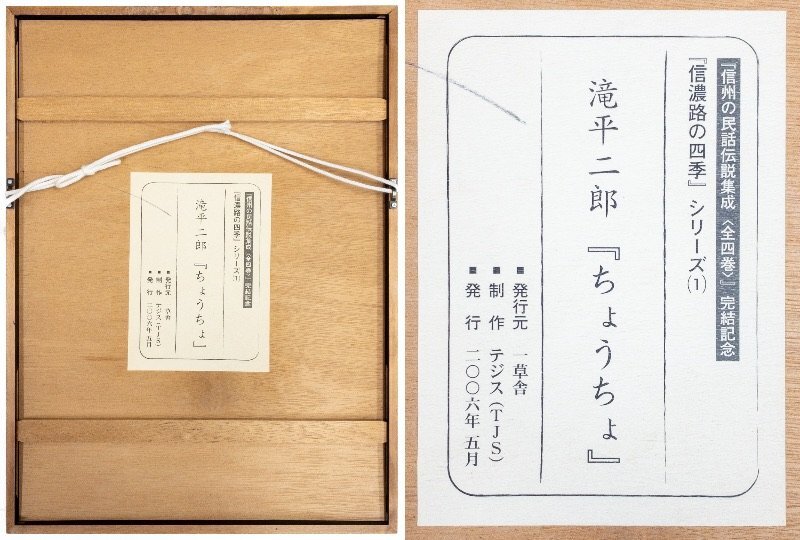 『信州の民話伝説集成〈全四巻〉』完結記念
『信濃路の四季』シリーズ⑴
滝平二郎『ちょうちょ』
■発行元 一草舎
■制作 テジス(TJS)
■発行 二〇〇六年五月
『信州の民話伝説集成〈全四巻〉』完結記念
『信濃路の四季』シリーズ⑴
滝平二郎『ちょうちょ』
■発行元 一草舎
■制作 テジス(TJS)
■発行 二〇〇六年五月